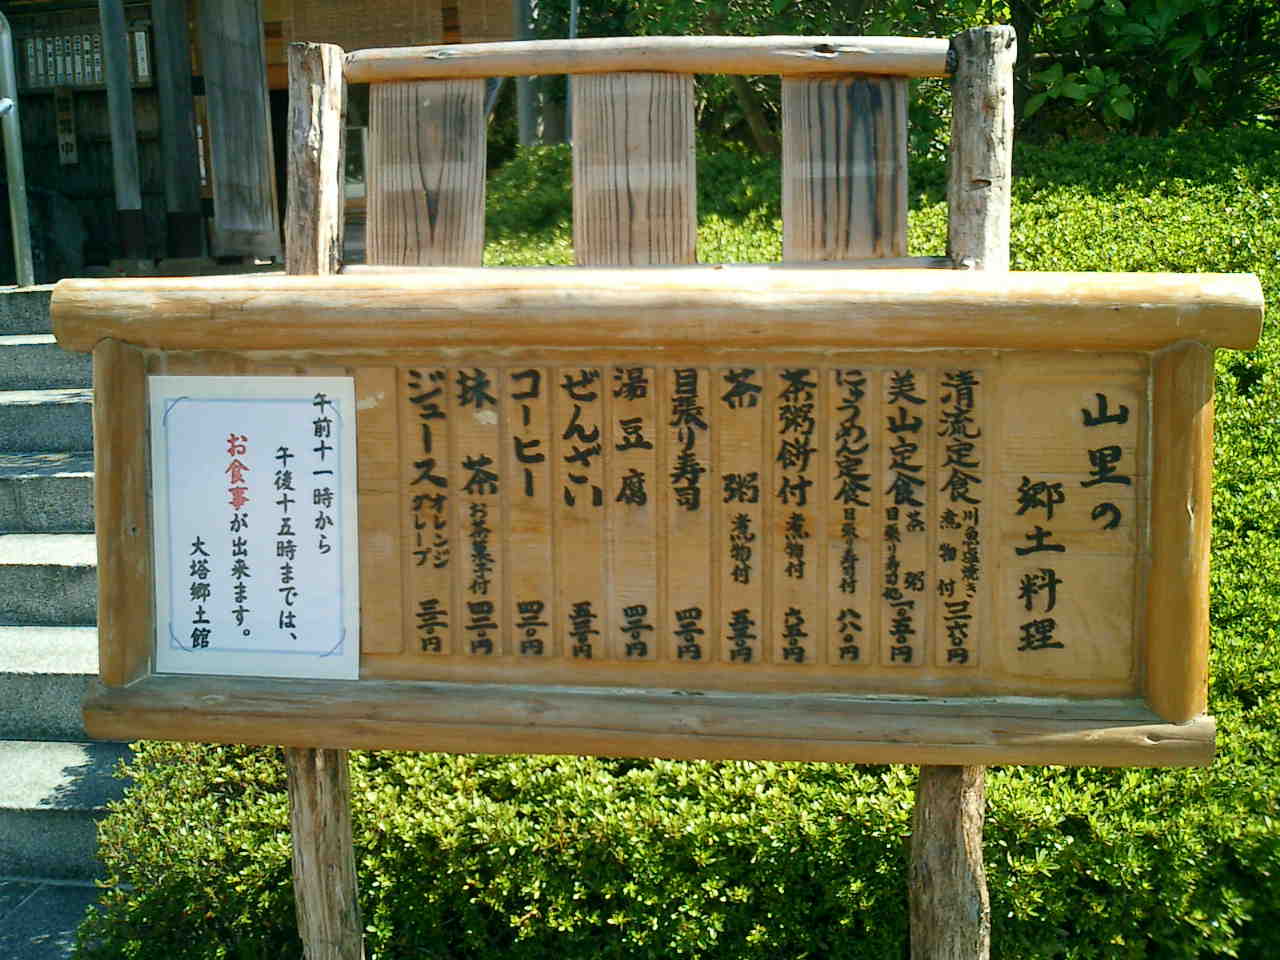 山里の
郷土料理
清流定食 川魚塩焼き 煮物付
美山定食 茶粥 目張り寿司他 一、〇五〇円
にゅうめん定食 目張り寿司付 八八〇円
茶粥餅付 煮物付 六五〇円
茶粥 煮物付 五五〇円
目張り寿司
湯豆腐
ぜんざい
コーヒー
抹茶 お茶菓子付
ジュース オレンジ グレープ
午前十一時から
午後十五時までは、
お食事が出来ます。
大塔郷土館